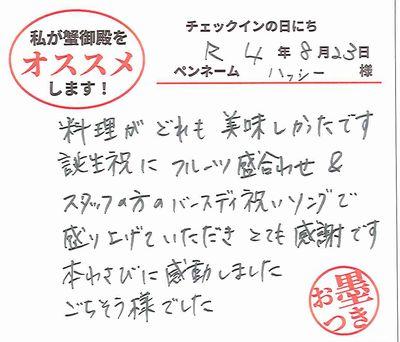 私が蟹御殿を
オススメ
します!
チェックインの日にち
R 4 年 8 月 23 日
ペンネーム ハッシー 様
料理が どれも 美味しかったです
誕生祝に フルーツ盛合わせ &
スタッフの方のバースディ祝いソングで
盛り上げていただき とても 感謝です
本わさびに感動しました
ごちそう様でした
お墨つき